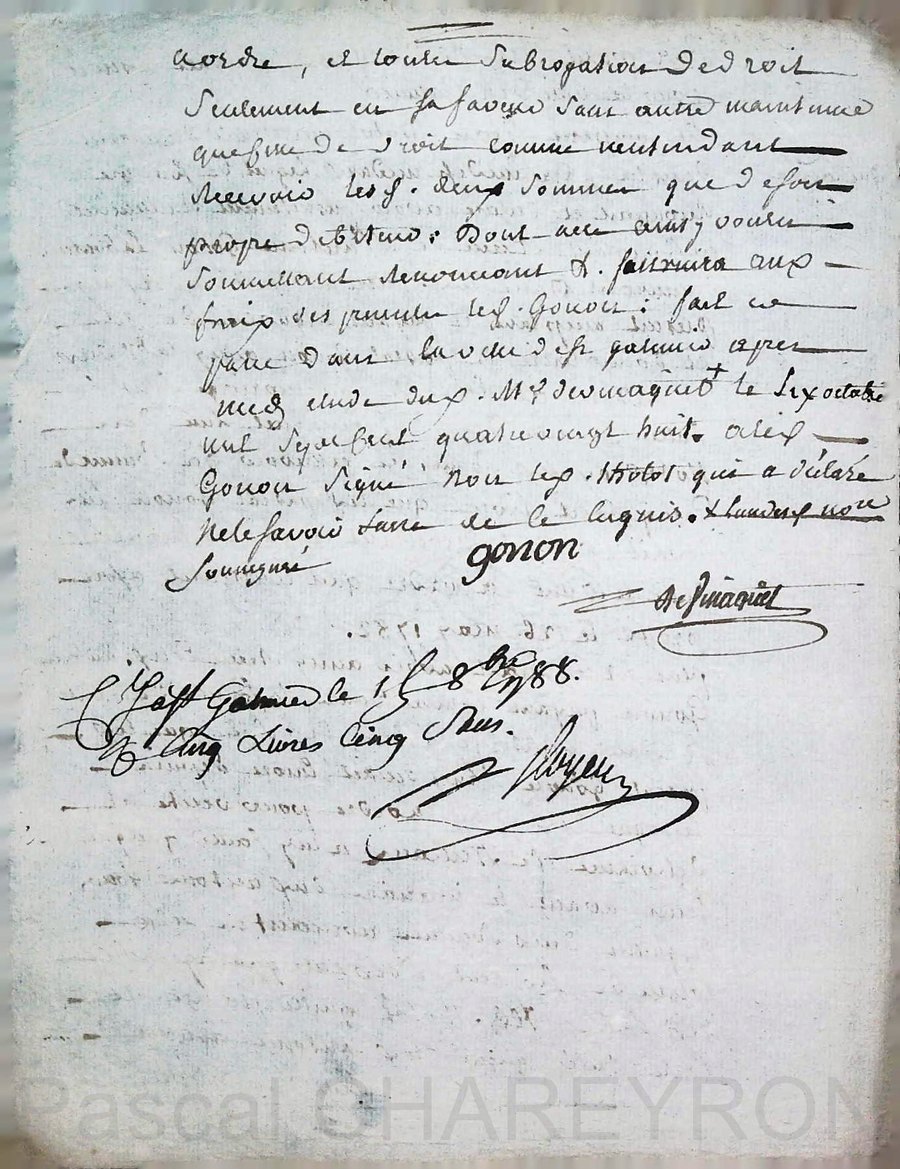 cordé, et toutte subrogation de droit
seulement en sa faveur sans autre maintenue
que celle de droit comme n'entendant
recevoir lesd. deux sommes que de son
propre debiteur; Dont acte ainsy voulu
soumettant renonceant &. satisfaira aux
fraix des presentes led. Gonon: fait et
passé dans la ville de st galmier apres
midi etude dud. Me desvinaquet + le six octobre
mil sept cent quatre vingt huit. aled
Gonon signé non led. thiolot qui a déclaré
ne le savoir faire de ce enquis. +
soussigné
gonon
Devinaquet
Cé a st Galmier le 15 8bre 1788.
R cinq Livres cinq Sous.
Pascal CHAREYRON